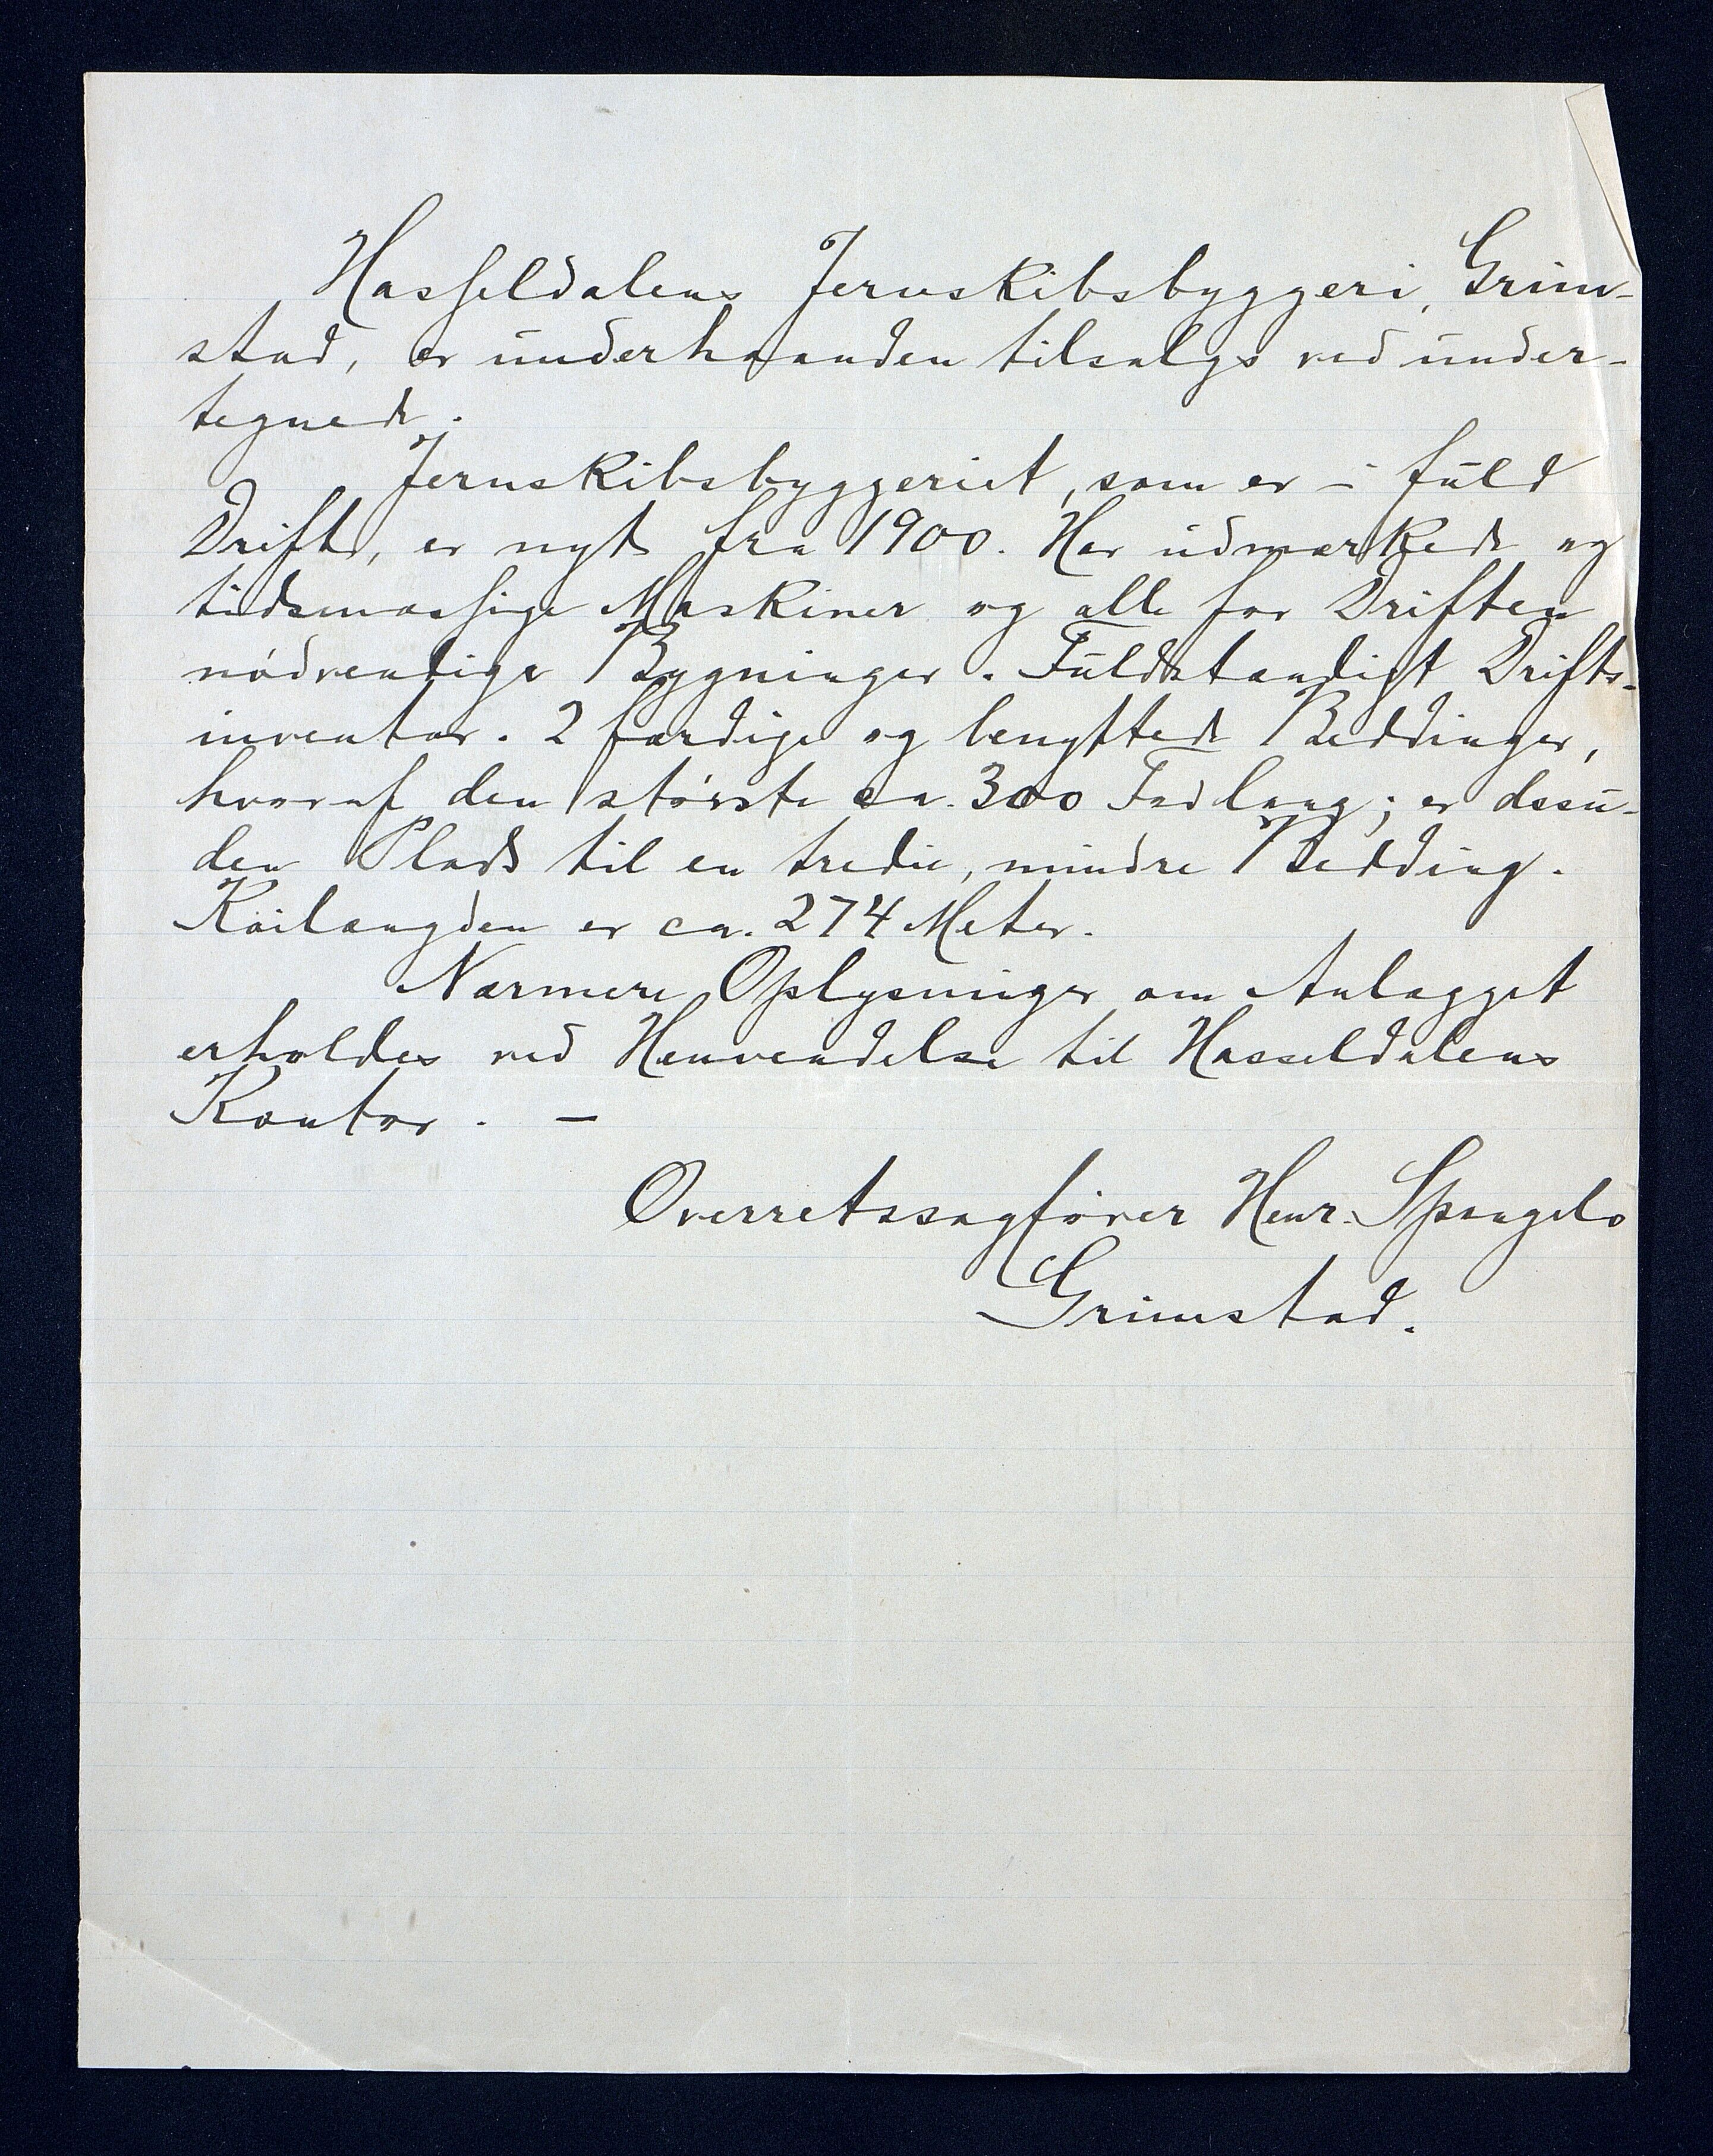 Hasseldalens Jernskibsbyggeri, Grim-
stad, er underhaanden tilsalgs ved under-
tegnede.
Jernskibsbyggeriet, som er i fuld
Drift, er nyt fra 1900. Har udmærkede og
tidsmæssige Maskiner og alle for Driften
nødvendige Bygninger. Fuldstændigt Drifts-
inventar. 2 færdige og benyttede Beddinger,
hvoraf den største ca. 300 Fod lang; er desu-
den Plads til en tredie, mindre Bedding.
Kailængden er ca. 274 Meter.
Nærmere Oplysninger om Anlægget
erholdes ved Henvendelse til Hasseldalens
Kontor. —
Overretssagfører Henr. Spangelo
Grimstad.